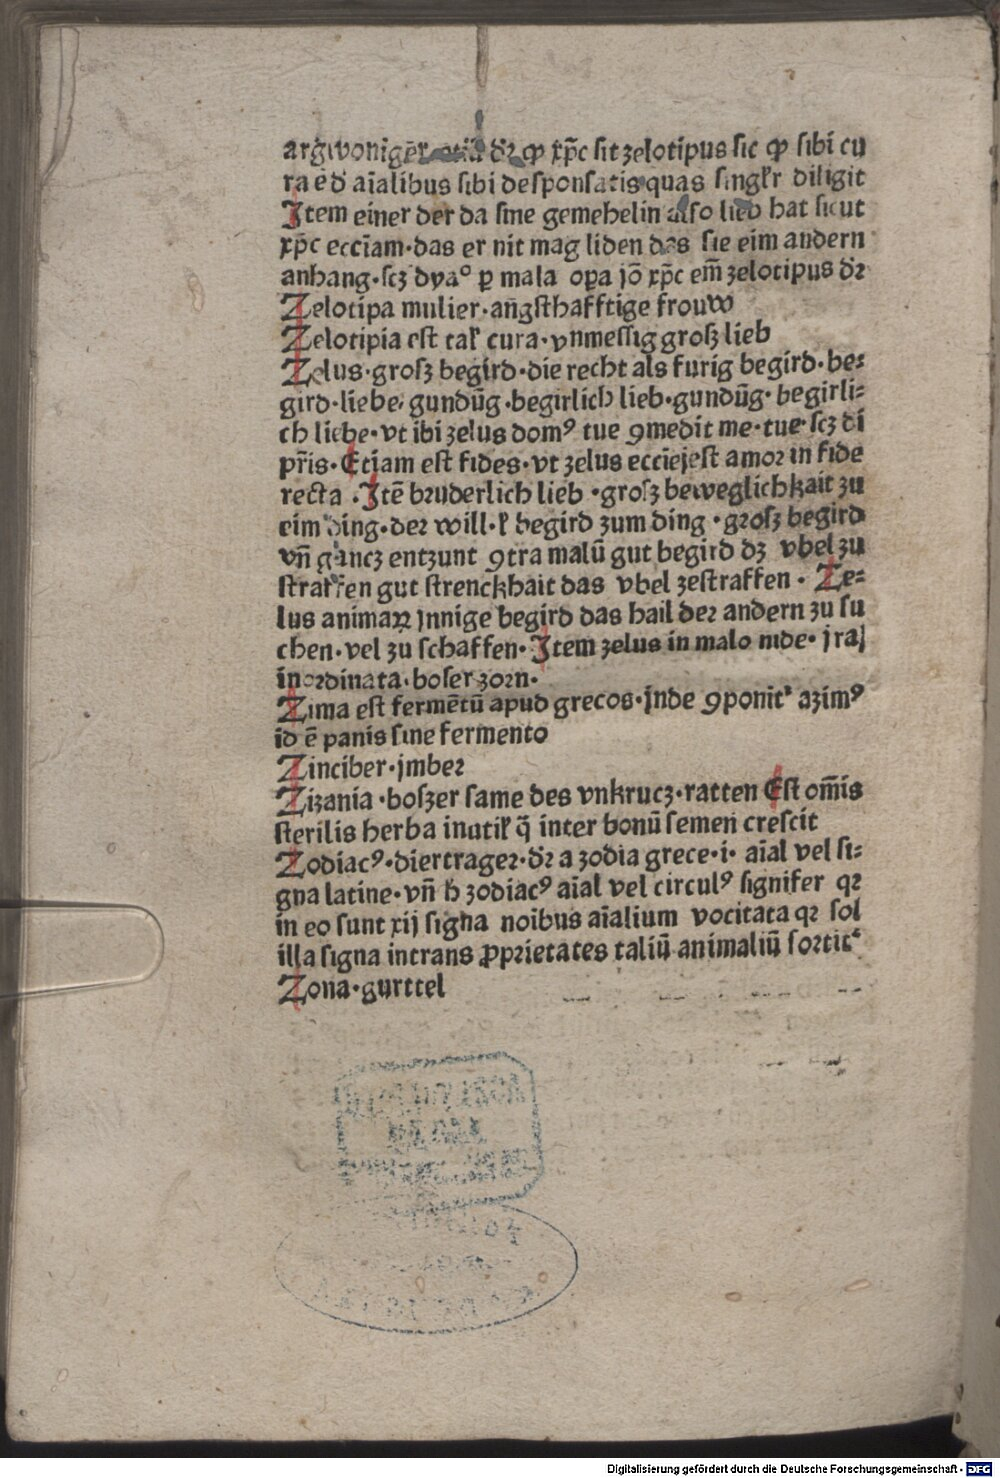 argwoniger etiā dꝛ ꝙ xp̄c sit zelotipus sic ꝙ sibi cu
ra ē d̄ aīalibus sibi desponsatis quas singl'r diligit
Item einer der da sine gemehelin also lieb hat sicut
xp̄c eccīam·das er nit mag liden das sie eim andern
anhang·scꝫ dyaᵒ ꝑ mala oꝑa iō xp̄c em̄ zelotipus dꝛ
Zelotipa mulier·an̄gsthafftige frouw
Zelotipia est tal' cura·vnmessig grosz lieb
Zelus·grosz begird·die recht als furig begird·be⸗
gird·liebe·gundūg·begirlich lieb·gundūg·begirli⸗
ch liebe·vt ibi zelus domꝰ tue ꝯmedit me·tue·scꝫ di
pr̄is·Etiam est fides·vt zelus eccīe jest amoꝛ in fide
recta·Itē bruderlich lieb·grosz beweglichkait zu
eim ding·der will·l' begird zum ding·grosz begird
vn̄ gancz entzunt ꝯtra malū gut begird dꝫ vbel zu
straffen gut strenckhait das vbel zestraffen·Ze⸗
lus animaꝝ jnnige begird das hail der andern zu su
chen·vel zu schaffen·Item zelus in malo nide·jraj
inoꝛdinata·boser zoꝛn·
Zima est fermētū apud grecos·jnde ꝯponit' azimꝰ
id ē panis sine fermento
Zinciber·jmber
Zizania·boszer same des vnkrucz·ratten Est om̄is
sterilis herba inutil' q̄ inter bonū semen crescit
Zodiacꝰ·diertrager·dꝛ a zodia grece·i·aīal vel si⸗
gna latine·vn̄ h̄ zodiacꝰ aīal vel circulꝰ signifer qꝛ
in eo sunt xij signa noībus aīalium vocitata qꝛ sol
illa signa intrans ꝓpꝛietates taliū animaliū soꝛtit'
Zona·gurttel
Digitalisierung gefördert durch die Deutsche Forschungsgemeinschaft - DFG